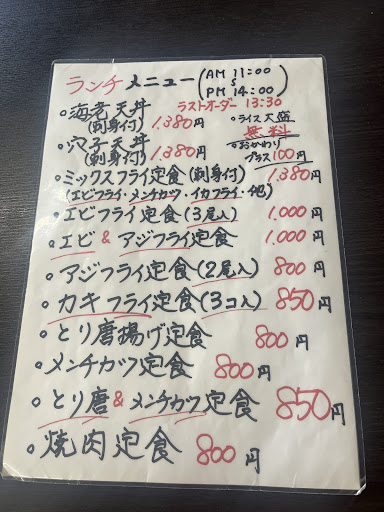 ランチメニュー(AM 11:00
S
PM 14:00)
ラストオーダー 13:30
○海老天丼
(刺身付) 1,380円
○ライス大盛
無料
○穴子天丼
(刺身付) 1,380円
○おかわり
プラス100円
○ミックスフライ定食(刺身付) 1,380円
(エビフライ・メンチカツ・イカフライ・他)
○エビフライ定食(3尾入) 1,000円
○エビ&アジフライ定食 1,000円
○アジフライ定食(2尾入) 800円
○カキフライ定食(3コ入) 850円
○とり唐揚げ定食 800円
○メンチカツ定食 800円
○とり唐&メンチカツ定食 850円
○焼肉定食 800円